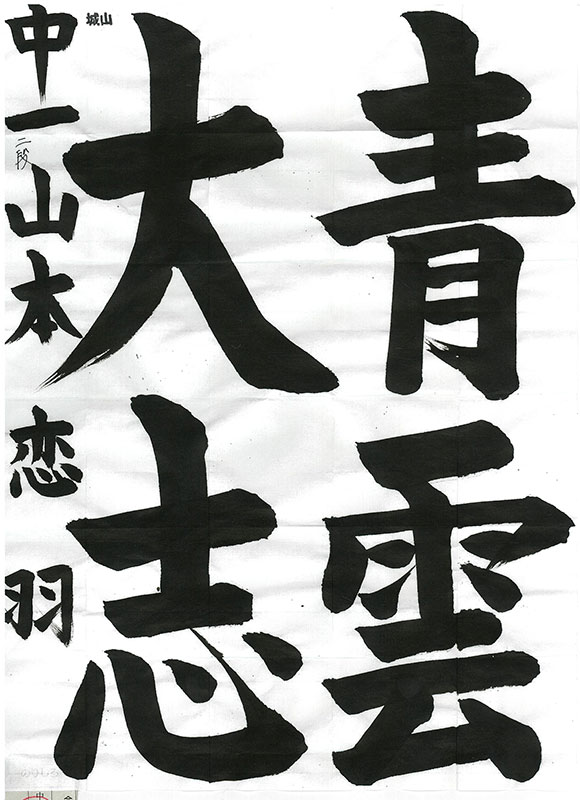 青雲
大志
城山
中一 二段 山本恋羽